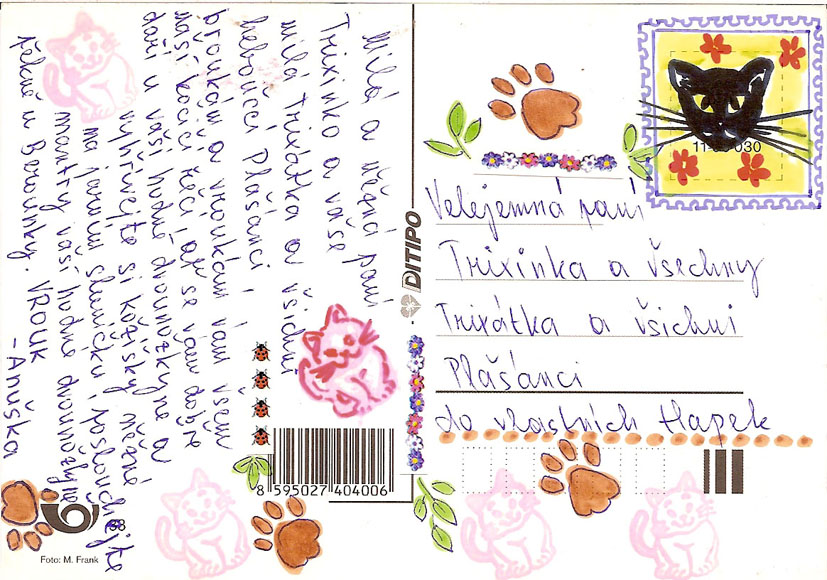 Milá a něžná paní
Trixinko a vaše
milá Trixátka a všichni
heboučcí Plášánci!
broukám a vroukám vám všem
naší kočičí řečí, ať se vám dobře
daří u vaší hodné dvounožkyně a
vyhřívejte si kožíšky něžné
na jarním sluníčku, poslouchejte
mantry vaší hodné dvounožkyně
pěkně u Berounky. VROUK
-Anuška
DITIPO
Velejemná paní
Trixinka a všechny
Trixátka a všichni
Plášánci
do vlastních tlapek
8 595027 404006
Foto: M. Frank